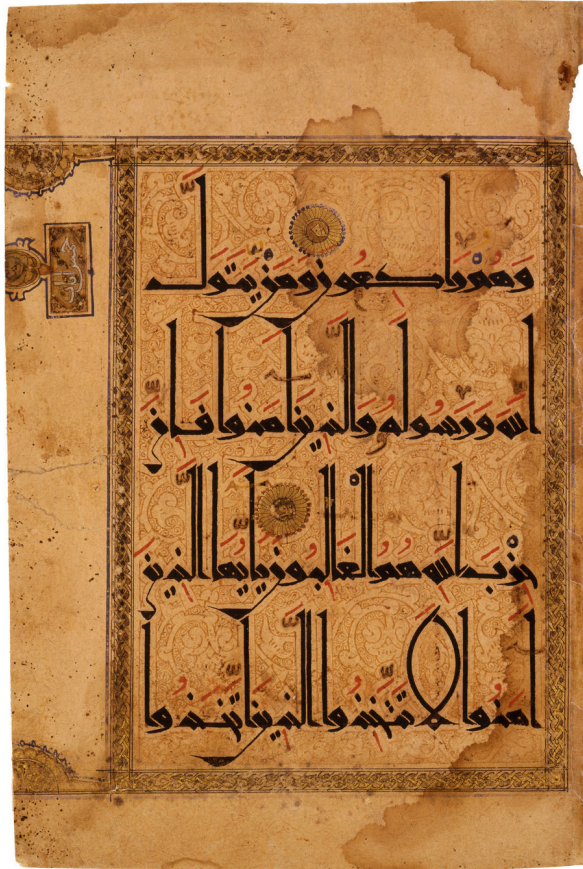 وَهُمْ رَاكِعُونَ وَمَنْ يَتَوَلَّ
اللهَ وَرَسُولَهُ وَالَّذِينَ آمَنُوا فَإِنَّ
حِزْبَ اللهِ هُمُ الْغَالِبُونَ يَآيُّهَا الَّذِينَ
آمَنُوا لَا تَتَّخِذُوا الَّذِينَ اتَّخَذُوا